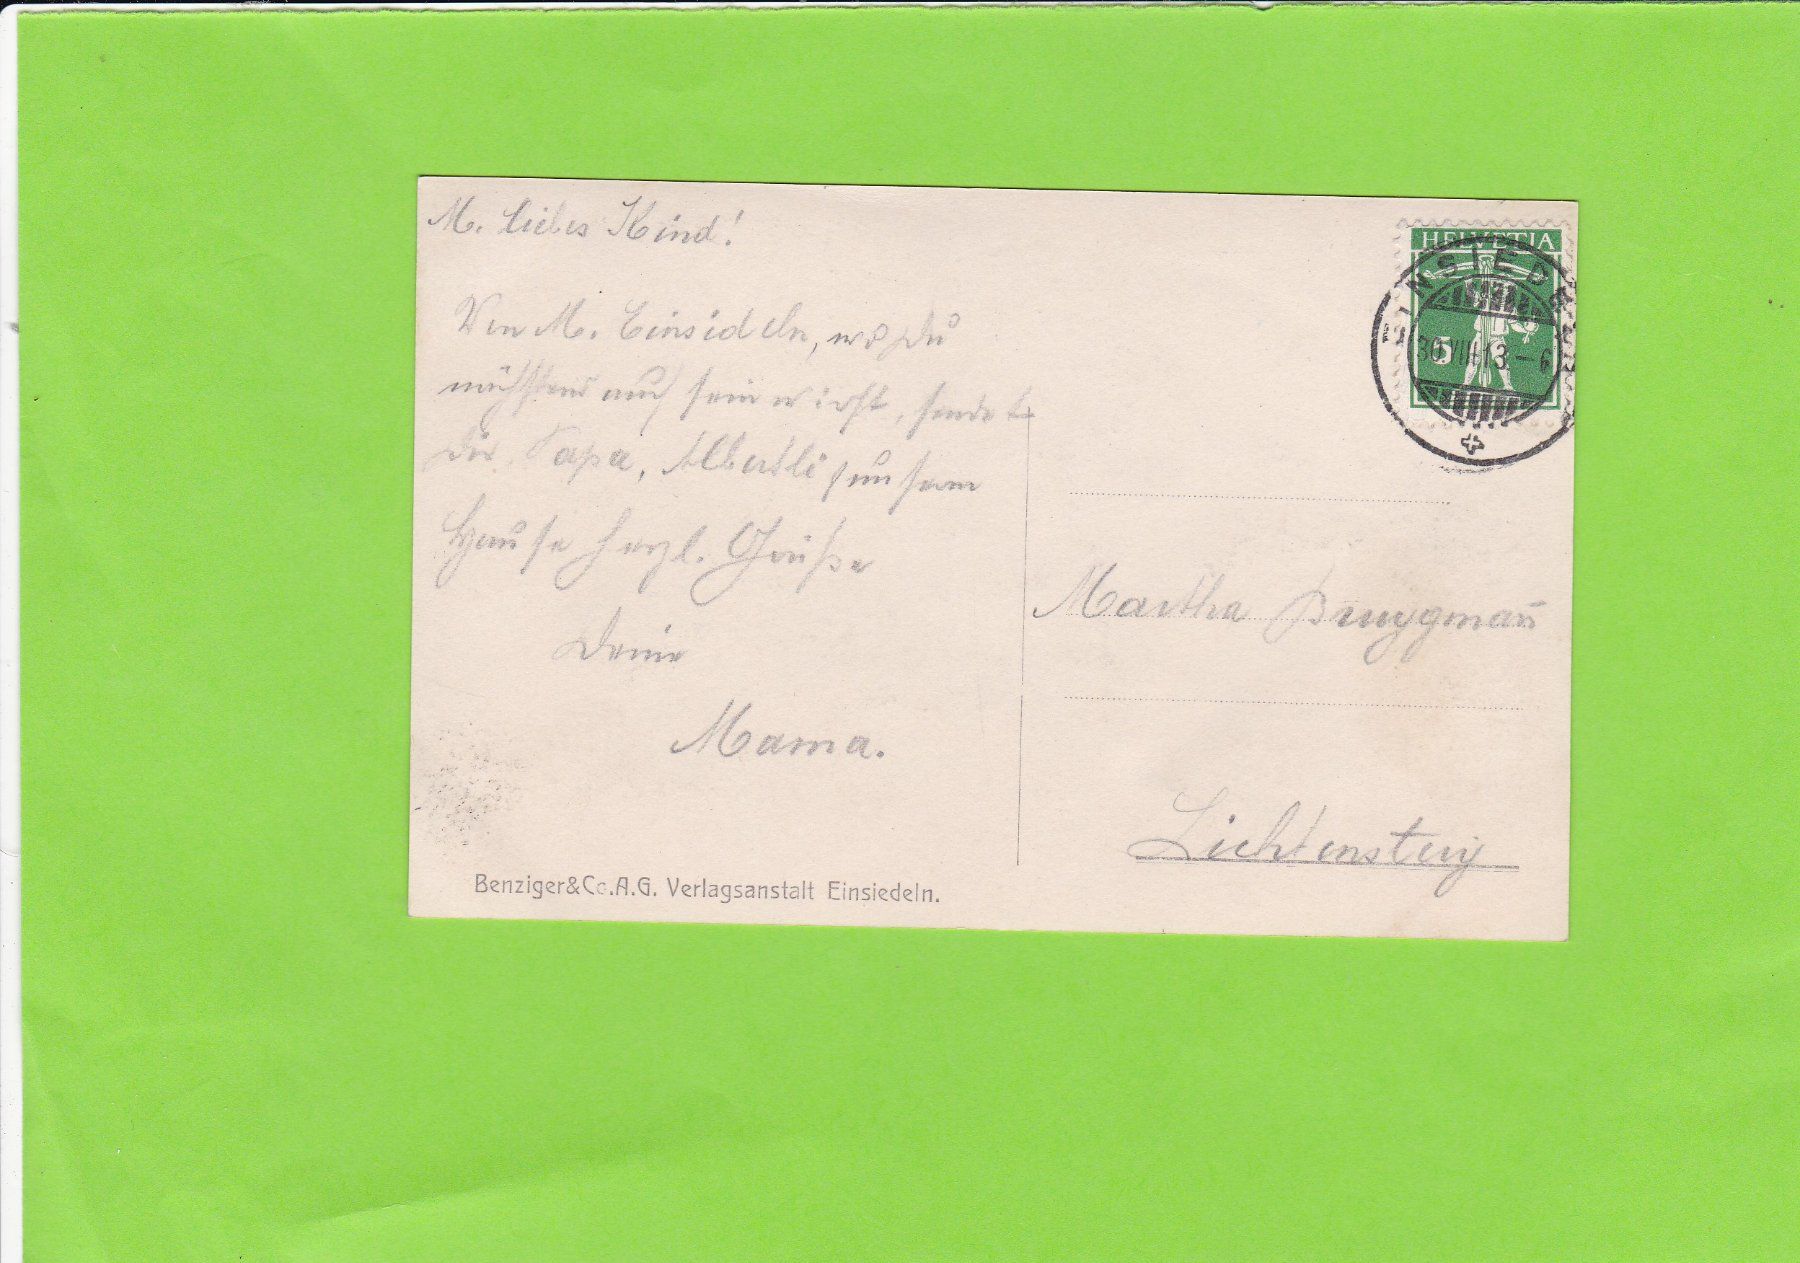 M. liebes Kind!
Von M. Einsideln, wo Du
nächstens auch sein wirst, sendet
Dir Papa, Albertli
Hause herzl. Grüße
Deine
Mama.
Benziger&Co.A.G. Verlagsanstalt Einsiedeln.
HELVETIA
5
EINSIEDELN
30.VIII.13.–6
Martha
Lichtensteig